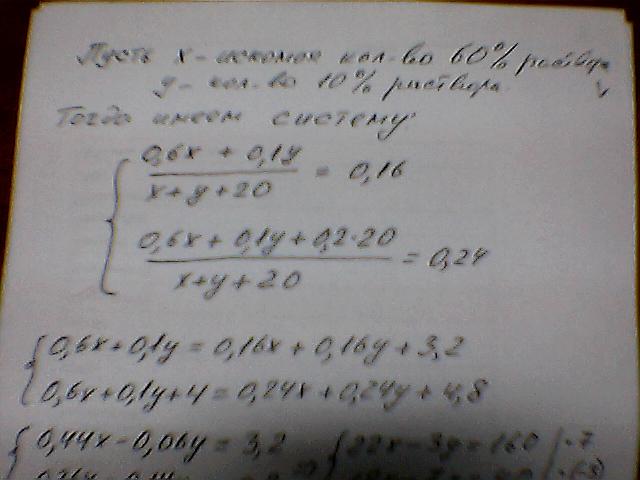 Пусть x - искомое кол-во 60% раствора
y - кол-во 10% раствора.
Тогда имеем систему:
0,6x + 0,1y / x+y+20 = 0,16
0,6x + 0,1y + 0,2·20 / x+y+20 = 0,24
0,6x+0,1y = 0,16x + 0,16y + 3,2
0,6x+0,1y+4 = 0,24x+0,24y+4,8
0,44x-0,06y = 3,2 22x-3y=160 | ·7